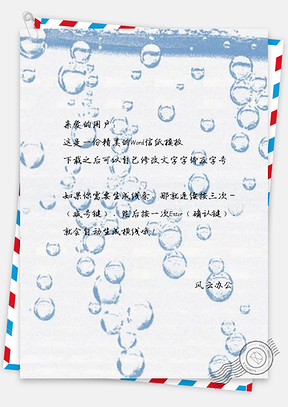 亲爱的用户
这是一份精美的Word信纸模板
下载之后可以自己修改文字字体及字号
如果你需要生成线条，那就连续按三次-
（减号键），然后按一次Enter（确认键）
就会自动生成横线哦！
风云办公